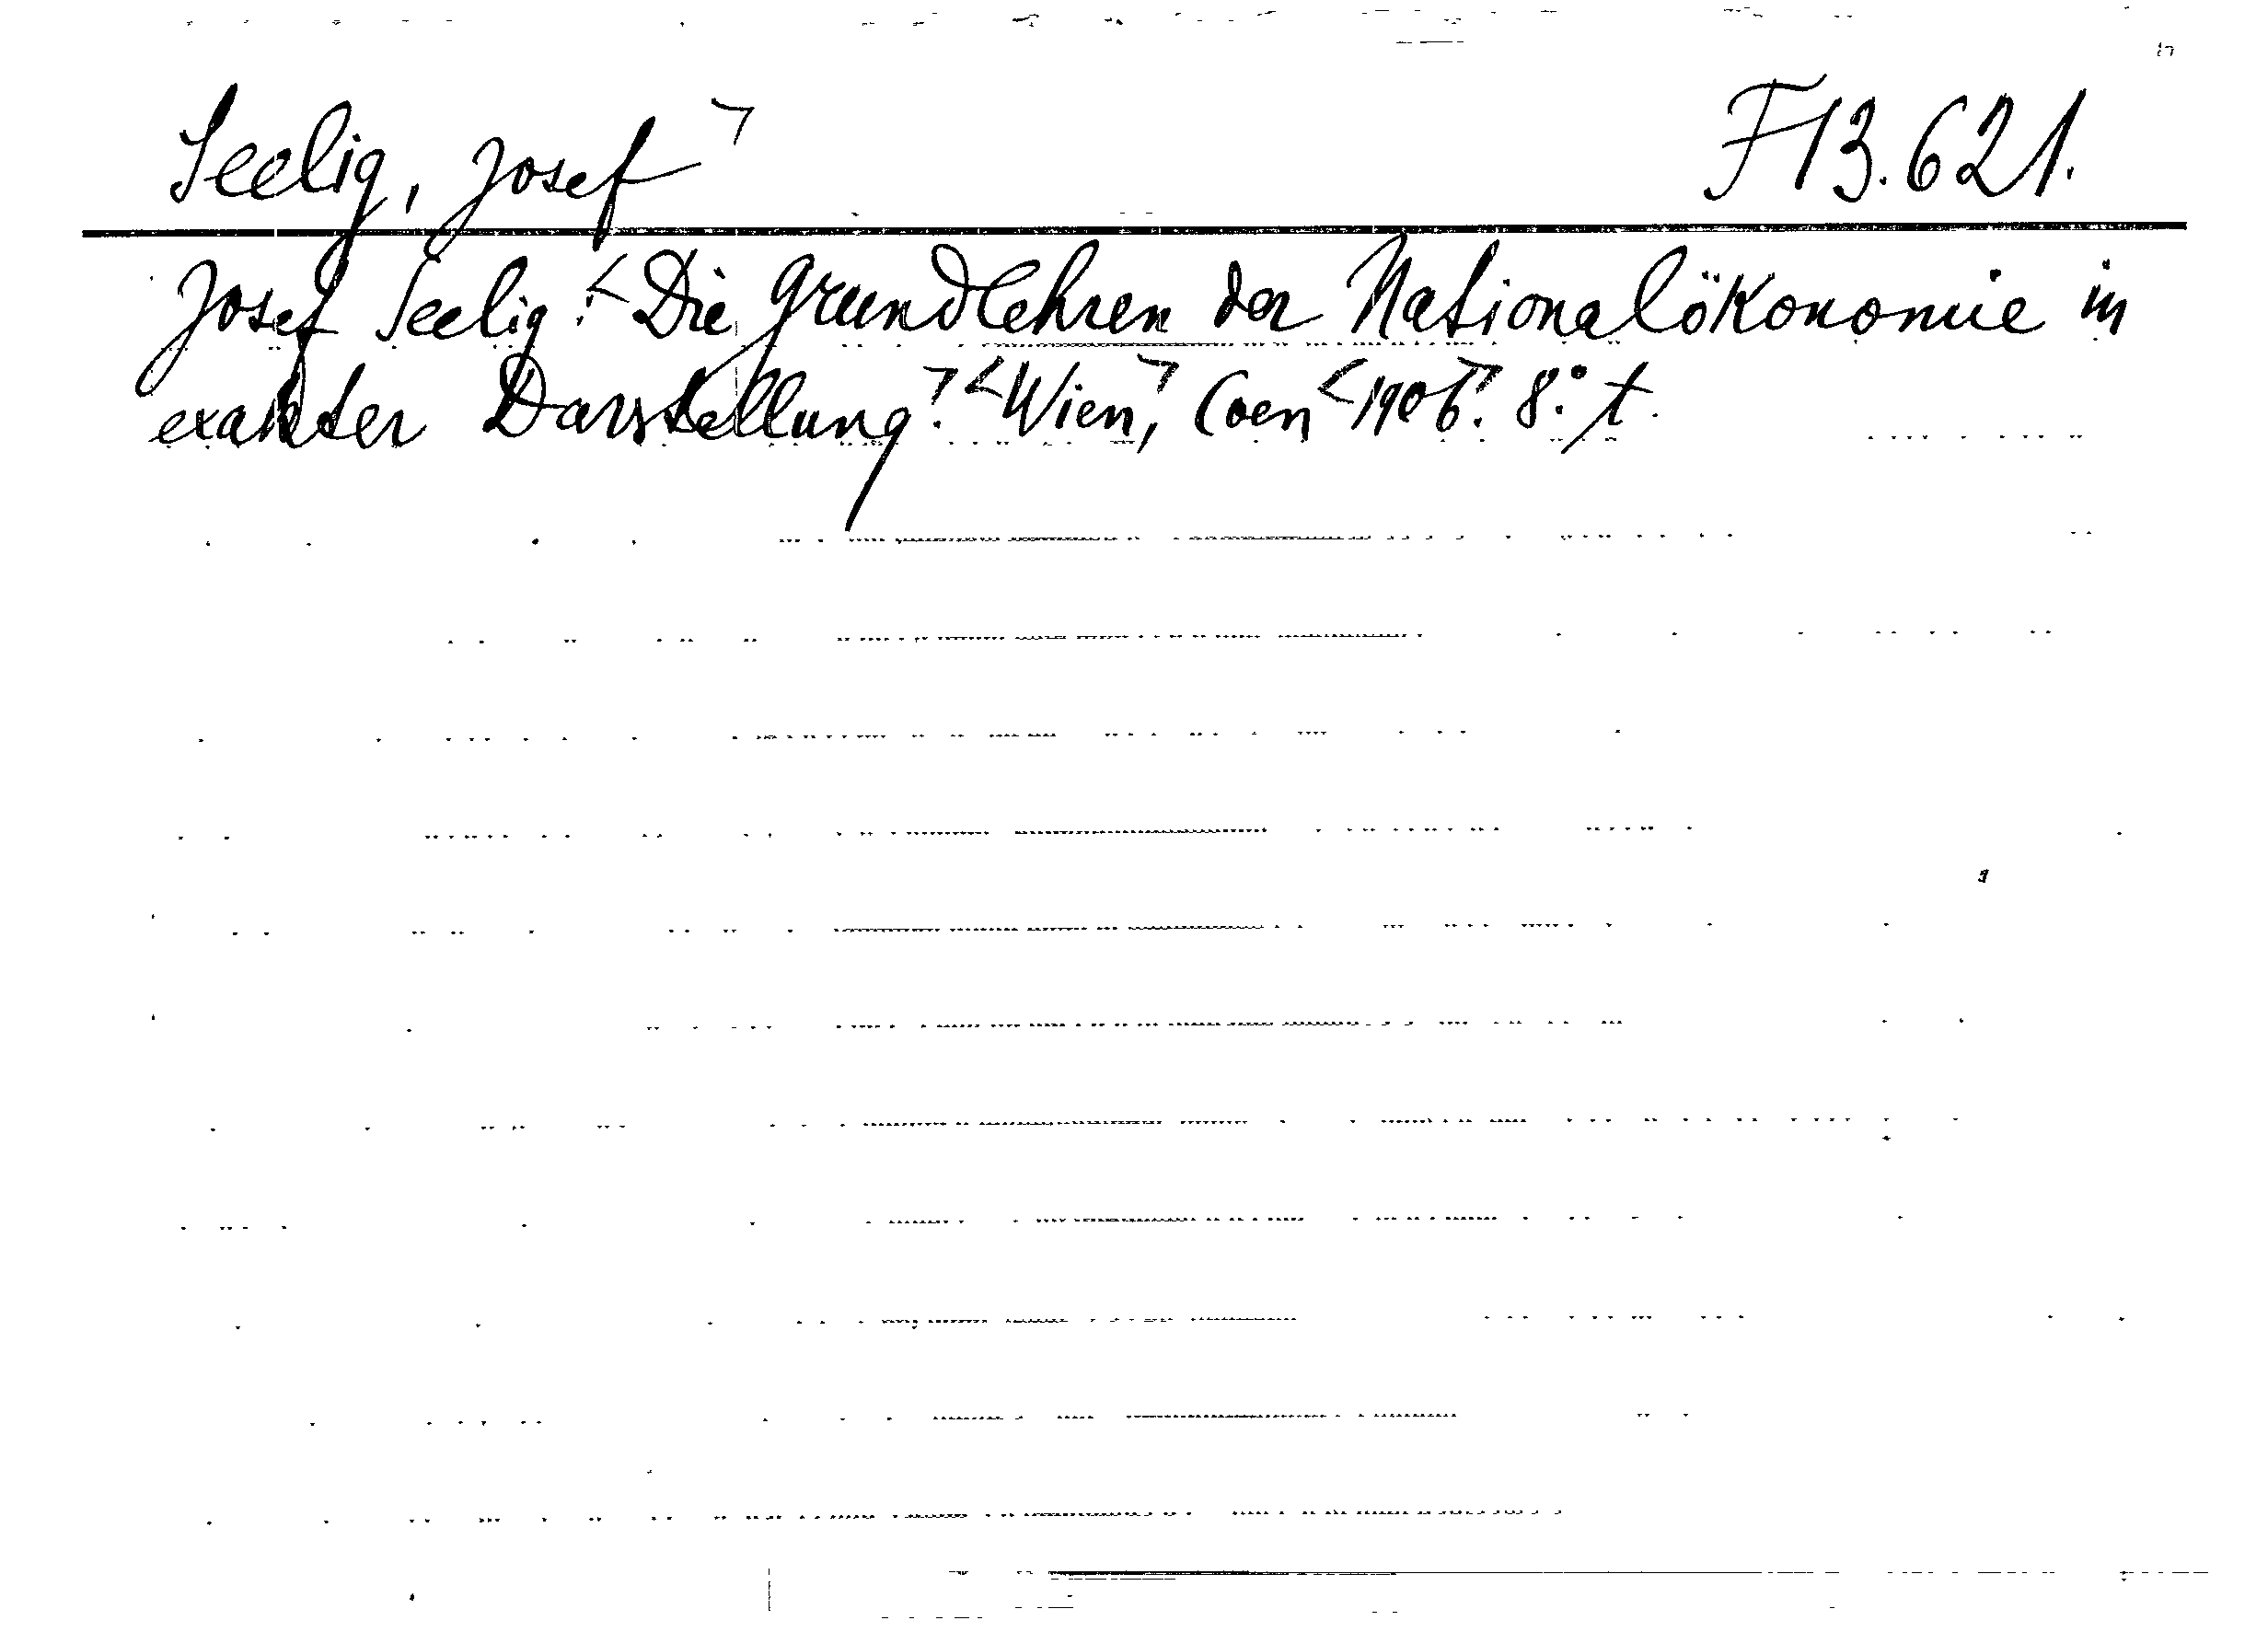 Seelig, Josef ¬ F 13.621.
Josef Seelig: < Die Grundlehren der Nationalökonomie in
exakter Darstellung ¬. < Wien ¬, Coen < 1906 ¬. 8° t.